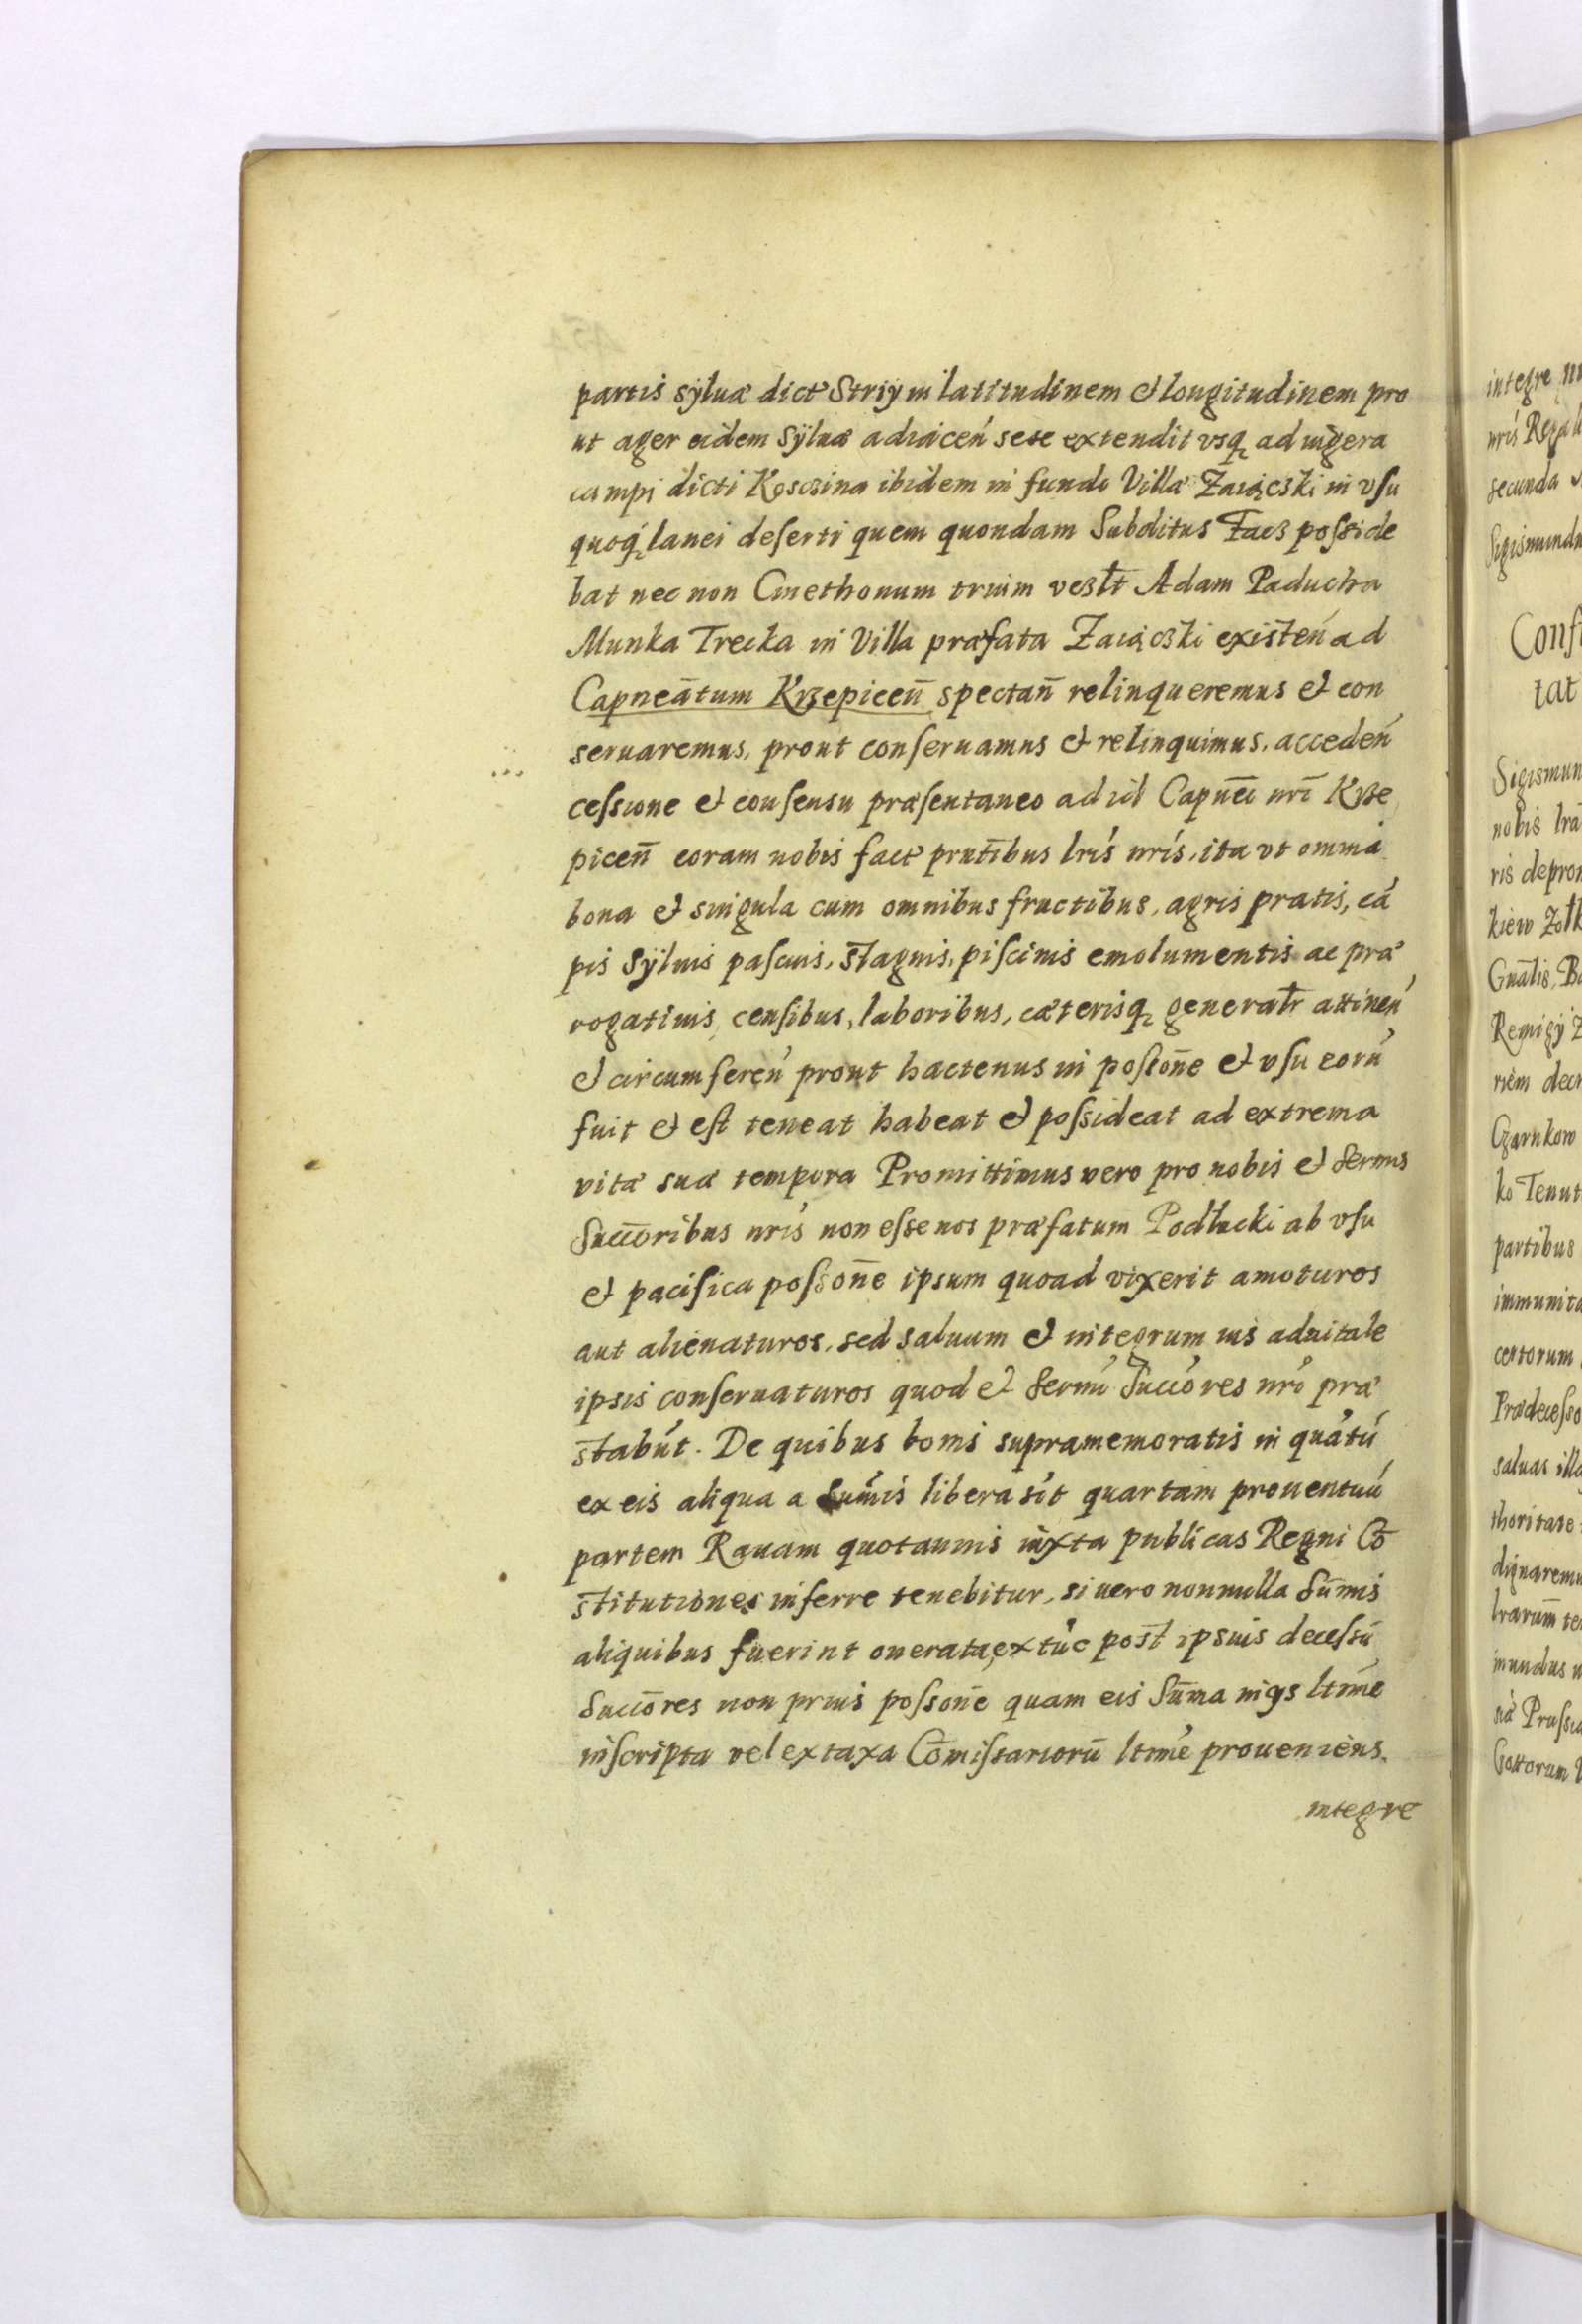 partis syluæ dictæ Striy in latitudinem et longitudinem pro
ut ager eidem Syluæ adiaceń sese extendit vsq ad iugera
campi dicti Kosczina ibidem in fundo Villæ Zaiączki in vsu
quoq lanei deserti quem quondam Subditus posside
bat nec non Cmethonum trium vczlt Adam Paducha
Munka Trecka in Villa præfata Zaiączki existeń ad
Capneātum Krzepiceñ spectañ relinqueremus et con
seruaremus, prout conseruamus et relinquimus, accedeń
cessione et consensu præsentaneo ad id Capnēi nrī Krze
piceñ coram nobis fact prntībus lrís nrís, ita vt omnia
bona et singula cum omnibus fructibus, agris pratis, cā
pis Syluis pascuis, stagnis, piscinis emolumentis ac præ
rogatiuis, censibus, laboribus, cæterisq generałr attineń
et circumfereń prout hactenus in possoñe et vsu eorū
fuit et est teneat habeat et possideat ad extrema
vitæ suæ tempora Promittimus vero pro nobis et Sermis
Succōribus nrís non esse nos præfatum Podłucki ab vsu
et pacifica possoñe ipsum quoad vixerit amoturos
aut alienaturos, sed saluum et integrum ius aduitale
ipsis conseruaturos quod et Sermí Succóres nrí præ
stabút. De quibus bonis supramemoratis in quātū
ex eis aliqua a sum̄is libera sít quartam prouentuū
partem Rauam quotannis iuxta publicas Regni Cō
stitutiones inferre tenebitur, si uero nonnulla Sum̄is
aliquibus fuerint onerata, extūc post ipsius decessū
Succōres non prius possoñe quam eis Sum̄a in ijs ltīme
inscripta vel ex taxa Cōmissariorū ltīme proueniens.
integre

integre
nris Regal
secunda
Sigismund
Conf
tat
Sigismun
nobis
ris depro
kiew Zołk
Gnālis
Remigÿ
riem
Czarnkow
ko Tenut
partibus
immunita
certorum
Prædecesso
saluas
thoritate
dignarem
lrarum
mundus
Prussia
Gottorum